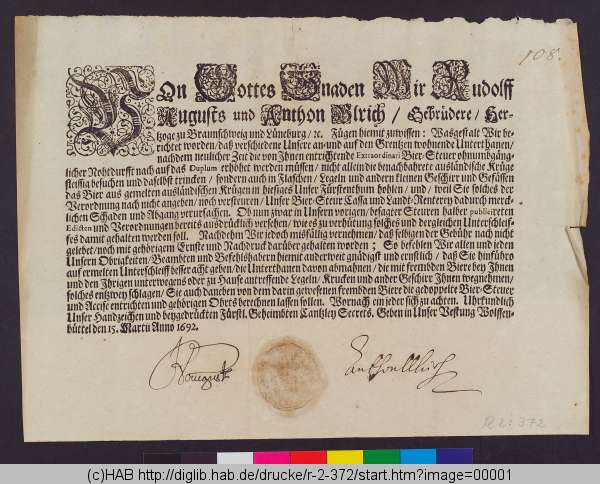 108.
Von Gottes Gnaden Wir Rudolff
Augustus und Anthon Ulrich / Gebrüdere / Her-
tzoge zu Braunschweig und Lüneburg / ꝛc. Fügen hiemit zuwissen: Wasgestalt Wir be-
richtet worden / daß verschiedene Unsere an- und auf den Grentzen wohnende Unterthanen /
nachdem neulicher Zeit die von Jhnen entrichtende Extraordinari Bier-Steur ohnumbgäng-
licher Nohtdurfft nach auf das Duplum erhöhet werden müssen / nicht allein die benachbahrete ausländische Krüge
fleissig besuchen und daselbst trincken / sondern auch in Flaschen / Legeln und andern kleinen Geschirr und Gefässen
das Bier aus gemelten ausländischen Krügen in hiesiges Unser Fürstenthum hohlen / und / weil Sie solches der
Verordnung nach nicht angeben / noch versteuren / Unser Bier-Steur Cassa und Landt-Renterey dadurch merck-
lichen Schaden und Abgang verursachen. Ob nun zwar in Unsern vorigen / besagter Steuren halber publicireten
Edicten und Verordnungen bereits ausdrücklich versehen / wie es zu verhütung solches und dergleichen Unterschleif-
fes damit gehalten werden soll. Nachdehn Wir jedoch mißfällig vernehmen / daß selbigen der Gebühr nach nicht
gelebet / noch mit gehörigem Ernste und Nachdruck darüber gehalten worden; So befehlen Wir allen und jeden
Unsern Obrigkeiten / Beambten und Befehlshabern hiemit anderweit gnädigst und ernstlich / daß Sie hinführo
auf ermelten Unterschleiff besser acht geben / die Unterthanen davon abmahnen / die mit frembden Biere bey Jhnen
und den Jhrigen unterwegens oder zu Hause antreffende Legeln / Krucken und ander Geschirr Jhnen wegnehmen /
solches entzwey schlagen / Sie auch daneben von dem darin gewesenen frembden Biere die gedoppelte Bier-Steuer
und Accise entrichten und gehörigen Ohrts berechnen lassen sollen. Wornach ein jeder sich zu achten. Uhrkundlich
Unser Handzeichen und beygedrückten Fürstl. Geheimbten Cantzley Secrets. Geben in Unser Vestung Wolffen-
büttel den 15. Martii Anno 1692.
Anthon Ulrich
R 2: 372
(c)HAB http://diglib.hab.de/drucke/r-2-372/start.htm?image=00001